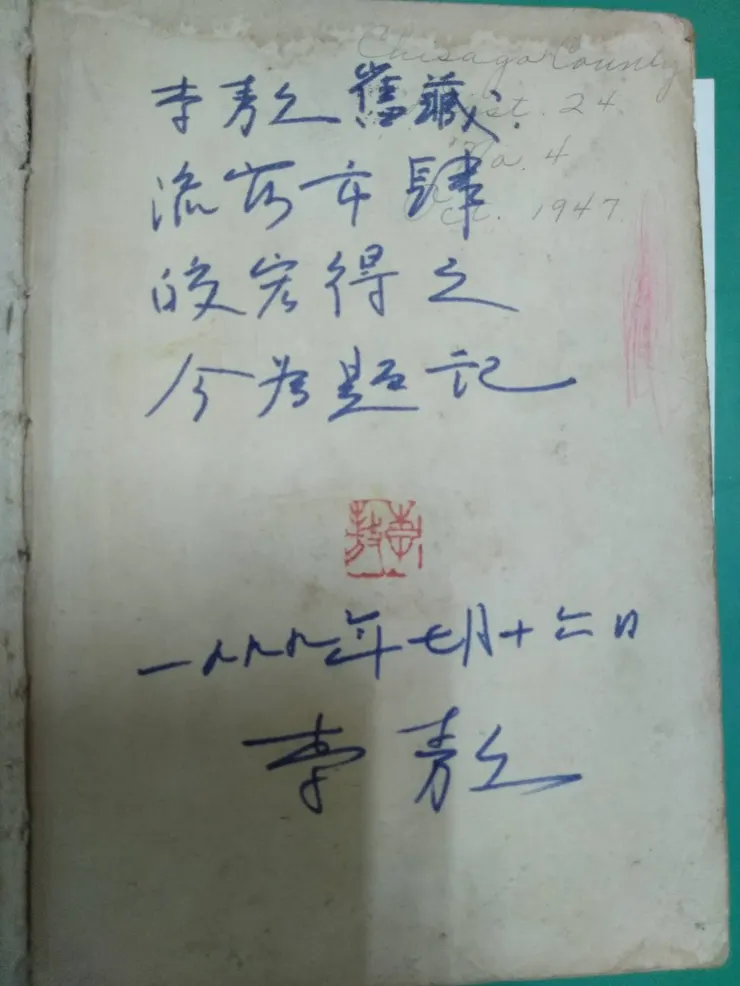 Chisago County
Dist. 24
No. 4
Oct. 1947
李敖舊藏
流落市肆
皎宏得之
今為題記
李敖
一九九九年七月十六日
李敖